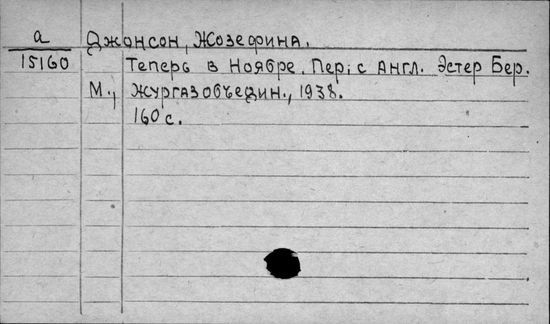 а Джонсон, Жозефина.
15160 Теперь в Ноябре. Пер. с Англ. Эстер Бер.
М., Жургазобъедин., 1938.
160 с.